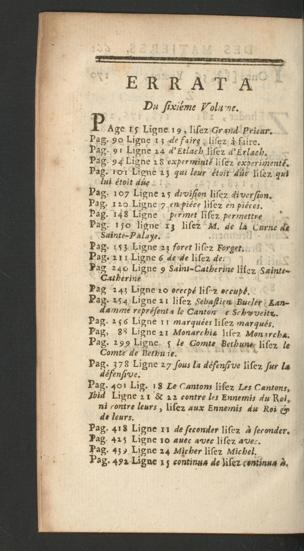 ERRATA
Du sixiéme Volume.
PAge 15 Ligne 19, lisez Grand Prieur.
Pag. 90 Ligne 13 de faire, lisez à faire.
Pag. 91 Ligne 24 d'Etlach lisez d'Erlach.
Pag. 94 Ligne 28 experminté lisez experimenté.
Pag. 101 Ligne 25 qui leur étoit düe lisez qui
lui étoit düe
Pag. 107 Ligne 25 devision lisez diversion.
Pag. 120 Ligne 7 en piéce lisez en piéces.
Pag. 148 Ligne permet lisez permettre
Pag. 150 ligne 23 lisez M. de la Curne de
Sainte-Palaye.
Pag. 153 Ligne 23 foret lisez Forget.
Pag. 211 Ligne 6 de de lisez de:
Pag 240 Ligne 9 Saint-Catherine lisez Sainte-
Catherine
Pag 245 Ligne 10 occcpé lisez occupé.
Pag. 254 Ligne 21 lisez Sebastien Bueler Lan-
damme représente le Canton e Schvveitz.
Pag. 256 Ligne 11 marquées lisez marqués.
Pag. 88 Ligne 21 Monarchia lisez Monarcha.
Pag. 299 Ligne 5 le Comte Bethune lisez le
Comte de Bethune.
Pag. 378 Ligne 27 sous la défensive lisez sur la
défensive.
Pag. 401 Lig. 18 Le Cantons lisez Les Cantons,
Ibid Ligne 21 & 22 contre les Ennemis du Roi,
ni contre leurs, lisez aux Ennemis du Roi &
de leurs.
Pag. 418 Ligne 11 de seconder lisez à seconder.
Pag. 425 Ligne 10 auec avec lisez avec.
Pag. 439 Ligne 24 Micher lisez Michel.
Pag. 492 Ligne 15 continua de lisez continua à.